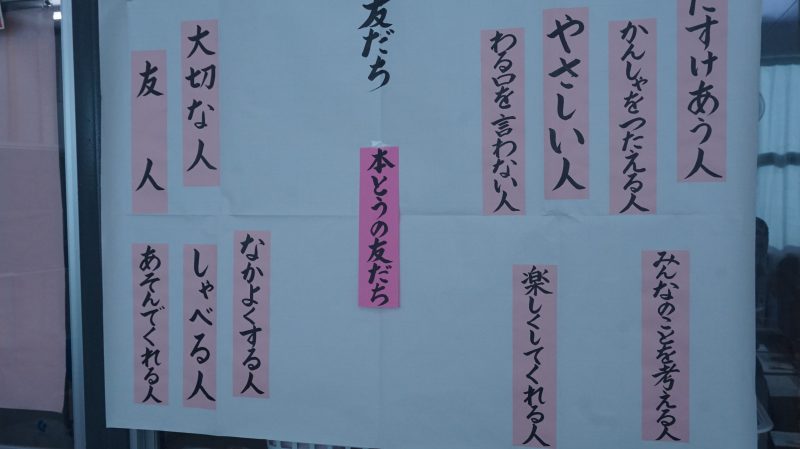 たすけあう人
かんしゃをつたえる人
やさしい人
わる口を言わない人
みんなのことを考える人
楽しくしてくれる人
友だち
本とうの友だち
大切な人
友人
なかよくする人
しゃべる人
あそんでくれる人